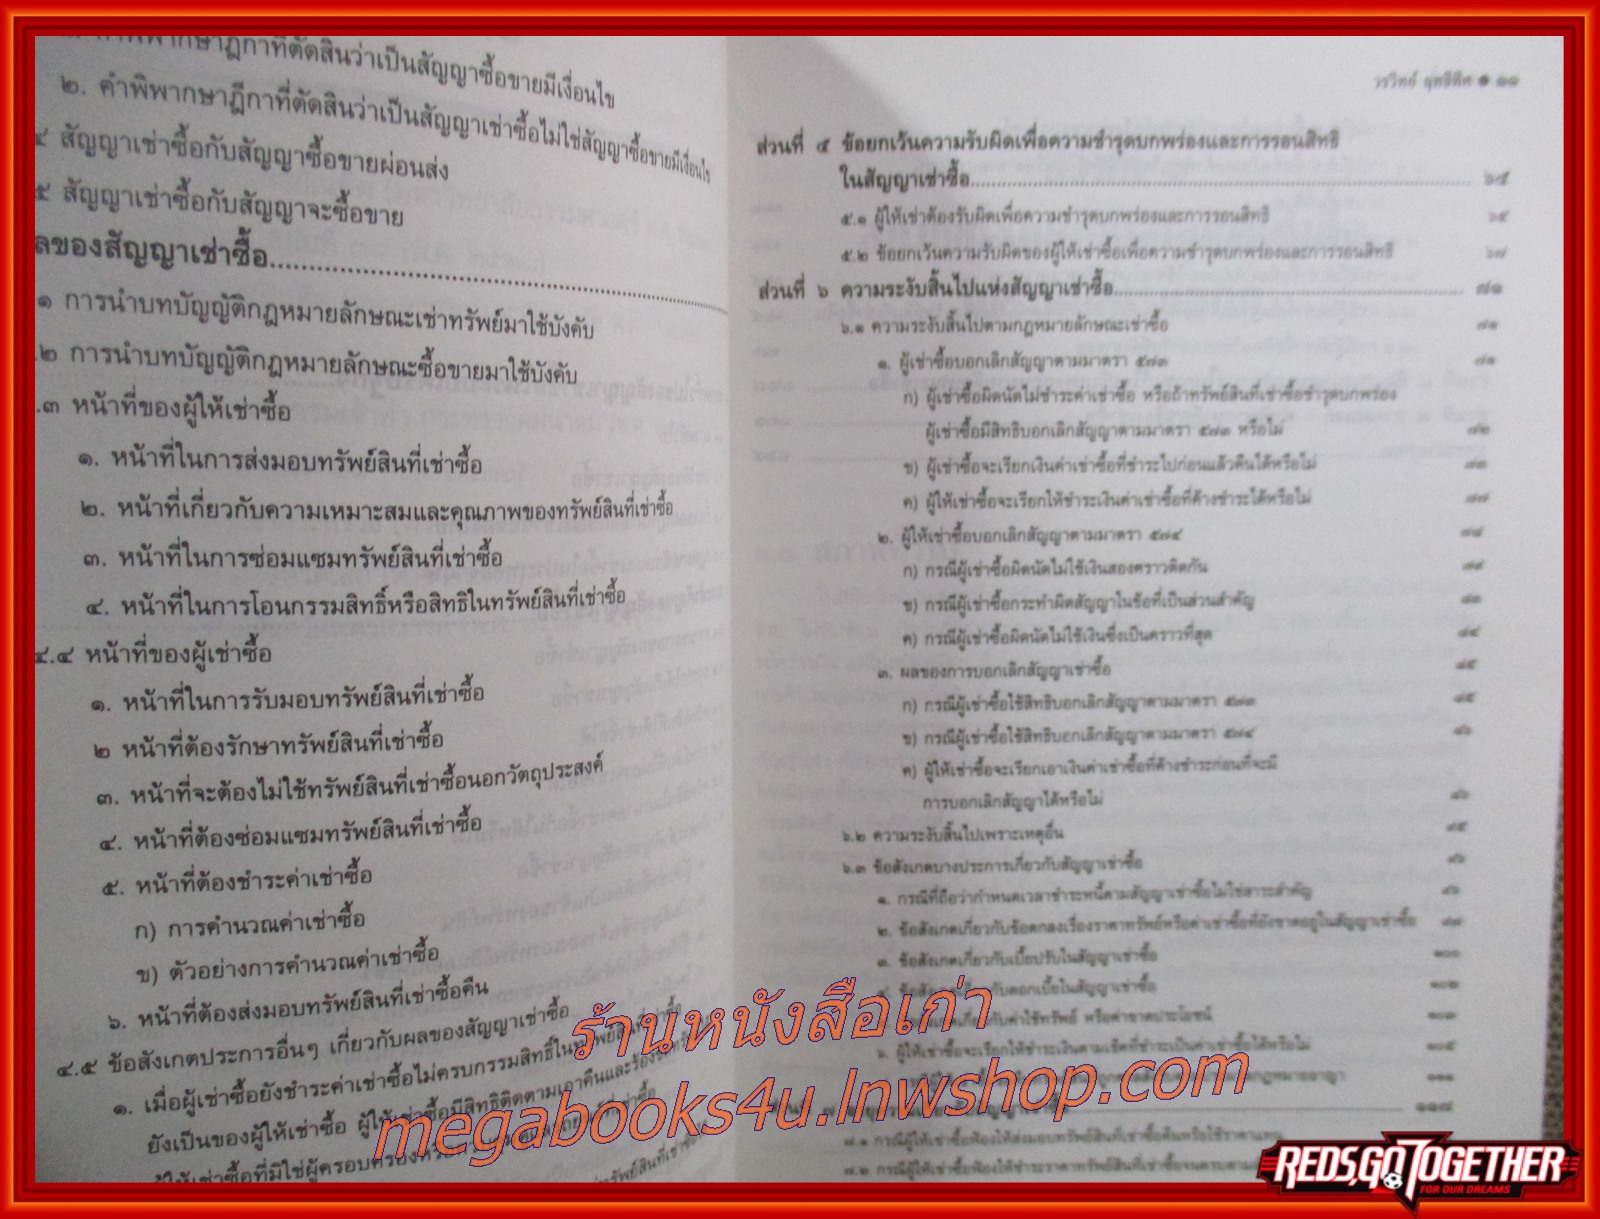 พิพากษาฎีกาที่ตัดสินว่าเป็นสัญญาซื้อขายมีเงื่อนไข
๒. คำพิพากษาฎีกาที่ตัดสินว่าเป็นสัญญาเช่าซื้อไม่ใช่สัญญาซื้อขายมีเงื่อนไข
๔ สัญญาเช่าซื้อกับสัญญาซื้อขายผ่อนส่ง
๕ สัญญาเช่าซื้อกับสัญญาจะซื้อขาย
ลของสัญญาเช่าซื้อ
๑ การนำบทบัญญัติกฎหมายลักษณะเช่าทรัพย์มาใช้บังคับ
.๒ การนำบทบัญญัติกฎหมายลักษณะซื้อขายมาใช้บังคับ
.๓ หน้าที่ของผู้ให้เช่าซื้อ
๑. หน้าที่ในการส่งมอบทรัพย์สินที่เช่าซื้อ
๒. หน้าที่เกี่ยวกับความเหมาะสมและคุณภาพของทรัพย์สินที่เช่าซื้อ
๓. หน้าที่ในการซ่อมแซมทรัพย์สินที่เช่าซื้อ
๔. หน้าที่ในการโอนกรรมสิทธิ์หรือสิทธิในทรัพย์สินที่เช่าซื้อ
๔.๔ หน้าที่ของผู้เช่าซื้อ
๑. หน้าที่ในการรับมอบทรัพย์สินที่เช่าซื้อ
๒ หน้าที่ต้องรักษาทรัพย์สินที่เช่าซื้อ
๓. หน้าที่จะต้องไม่ใช้ทรัพย์สินที่เช่าซื้อนอกวัตถุประสงค์
๔. หน้าที่ต้องซ่อมแซมทรัพย์สินที่เช่าซื้อ
๕. หน้าที่ต้องชำระค่าเช่าซื้อ
ก) การคำนวณค่าเช่าซื้อ
ข) ตัวอย่างการคำนวณค่าเช่าซื้อ
๖. หน้าที่ต้องส่งมอบทรัพย์สินที่เช่าซื้อคืน
๔.๕ ข้อสังเกตประการอื่นๆ เกี่ยวกับผลของสัญญาเช่าซื้อ
๑. เมื่อผู้เช่าซื้อยังชำระค่าเช่าซื้อไม่ครบกรรมสิทธิ์ในทรัพย์สินที่เช่าซื้อ
ยังเป็นของผู้ให้เช่าซื้อ ผู้ให้เช่าซื้อมีสิทธิติดตามเอาคืนและร้องขอ
ส่วนที่ ๕ ข้อยกเว้นความรับผิดเพื่อความชำรุดบกพร่องและการรอนสิทธิ
ในสัญญาเช่าซื้อ ๖๕
๕.๑ ผู้ให้เช่าต้องรับผิดเพื่อความชำรุดบกพร่องและการรอนสิทธิ ๖๕
๕.๒ ข้อยกเว้นความรับผิดของผู้ให้เช่าซื้อเพื่อความชำรุดบกพร่องและการรอนสิทธิ ๖๗
ส่วนที่ ๖ ความระงับสิ้นไปแห่งสัญญาเช่าซื้อ ๗๑
๖.๑ ความระงับสิ้นไปตามกฎหมายลักษณะเช่าซื้อ ๗๑
๑. ผู้เช่าซื้อบอกเลิกสัญญาตามมาตรา ๕๗๓ ๗๑
ก) ผู้เช่าซื้อผิดนัดไม่ชำระค่าเช่าซื้อ หรือถ้าทรัพย์สินที่เช่าซื้อชำรุดบกพร่อง
ผู้เช่าซื้อมีสิทธิบอกเลิกสัญญาตามมาตรา ๕๗๓ หรือไม่ ๗๒
ข) ผู้เช่าซื้อจะเรียกเงินค่าเช่าซื้อที่ชำระไปก่อนแล้วคืนได้หรือไม่ ๗๓
ค) ผู้ให้เช่าซื้อจะเรียกให้ชำระเงินค่าเช่าซื้อที่ค้างชำระได้หรือไม่ ๗๗
๒. ผู้ให้เช่าซื้อบอกเลิกสัญญาตามมาตรา ๕๗๔ ๗๘
ก) กรณีผู้เช่าซื้อผิดนัดไม่ใช้เงินสองคราวติดกัน
ข) กรณีผู้เช่าซื้อกระทำผิดสัญญาในข้อที่เป็นส่วนสำคัญ
ค) กรณีผู้เช่าซื้อผิดนัดไม่ใช้เงินซึ่งเป็นคราวที่สุด
๓. ผลของการบอกเลิกสัญญาเช่าซื้อ
ก) กรณีผู้เช่าซื้อใช้สิทธิบอกเลิกสัญญาตามมาตรา ๕๗๓
ข) กรณีผู้เช่าซื้อใช้สิทธิบอกเลิกสัญญาตามมาตรา ๕๗๔
ค) ผู้ให้เช่าซื้อจะเรียกเอาเงินค่าเช่าซื้อที่ค้างชำระก่อนที่จะมี
การบอกเลิกสัญญาได้หรือไม่
๖.๒ ความระงับสิ้นไปเพราะเหตุอื่น
๖.๓ ข้อสังเกตบางประการเกี่ยวกับสัญญาเช่าซื้อ
๑. กรณีที่ถือว่ากำหนดเวลาชำระหนี้ตามสัญญาเช่าซื้อไม่ใช่สาระสำคัญ
๒. ข้อสังเกตเกี่ยวกับข้อตกลงเรื่องราคาทรัพย์หรือค่าเช่าซื้อที่ยังขาดอยู่ในสัญญาเช่าซื้อ
๓. ข้อสังเกตเกี่ยวกับเบี้ยปรับในสัญญาเช่าซื้อ ๑๐๐
ข้อสังเกตเกี่ยวกับดอกเบี้ยในสัญญาเช่าซื้อ ๑๐๒
เกี่ยวกับค่าใช้ทรัพย์ หรือค่าขาดประโยชน์ ๑๐๓
๖. ผู้ให้เช่าซื้อจะเรียกให้ชำระเงินตามเช็คที่ชำระเป็นค่าเช่าซื้อได้หรือไม่ ๑๐๕
๗.๑ กรณีผู้ให้เช่าซื้อฟ้องให้ส่งมอบทรัพย์สินที่เช่าซื้อคืนหรือใช้ราคาแทน
๗.๒ กรณีผู้ให้เช่าซื้อฟ้องให้ชำระราคาทรัพย์สินที่เช่าซื้อจนครบตาม
ร้านหนังสือเก่า
megabooks4u.lnwshop.com
REDS,GO TOGETHER
FOR OUR DREAMS